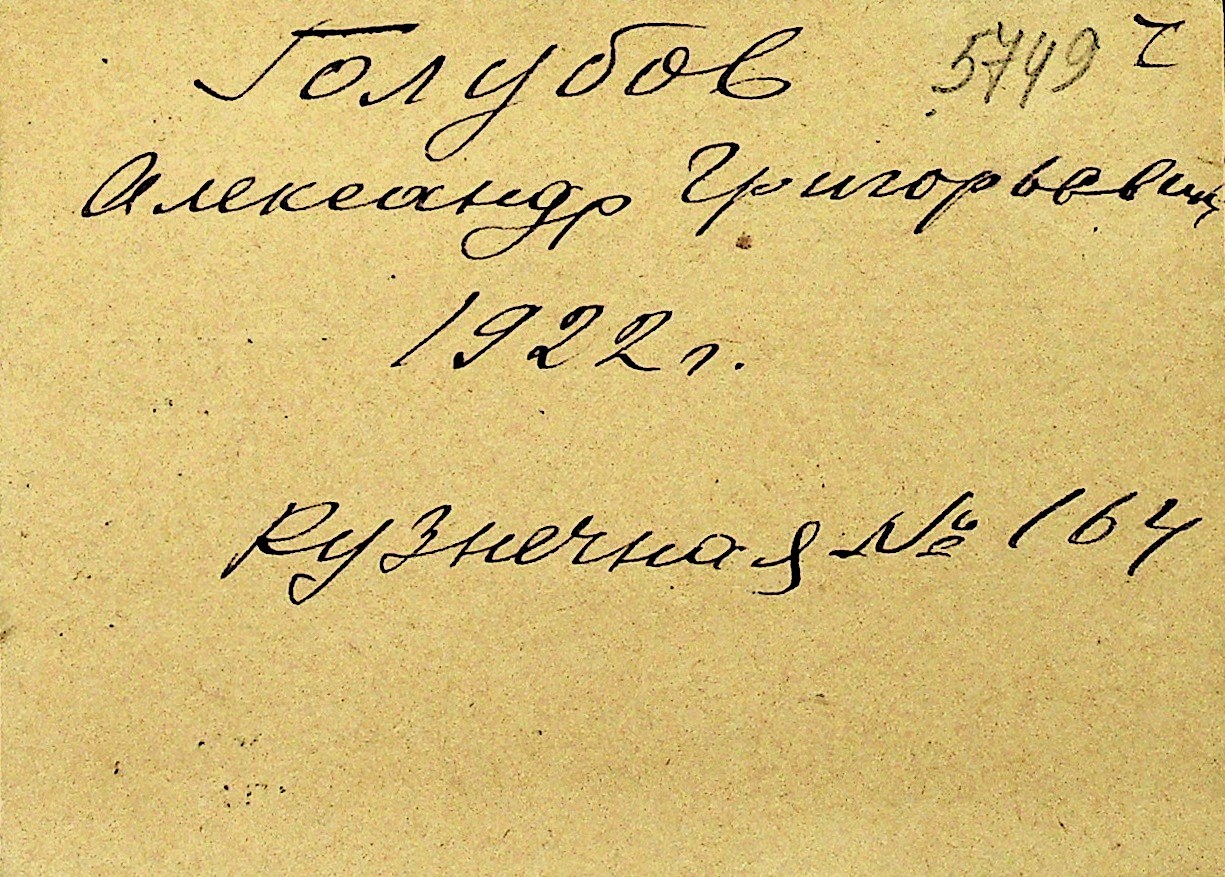 Голубов 5749 ч
Александр Григорьевич
1922 г.
Кузнечная № 164